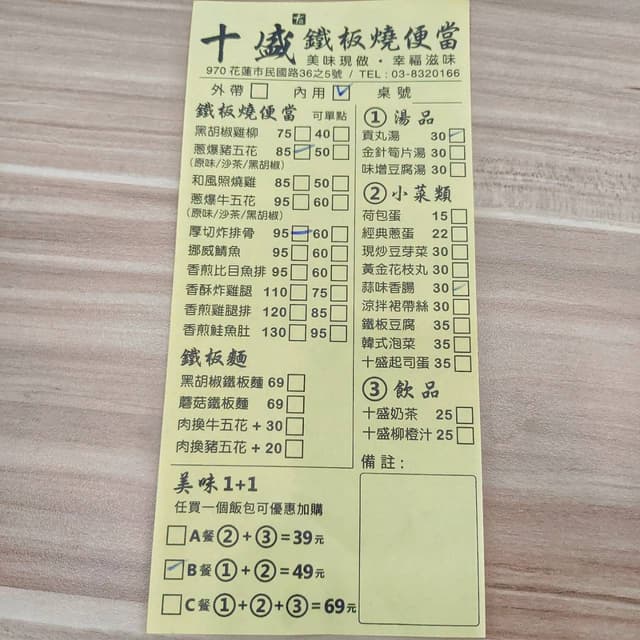 十盛 鐵板燒便當
美味現做・幸福滋味
970 花蓮市民國路36之5號 / TEL : 03-8320166
外帶□ 內用☑ 桌號
鐵板燒便當 可單點
黑胡椒雞柳 75□40□
蔥爆豬五花 85□50□
(原味/沙茶/黑胡椒)
和風照燒雞 85□50□
蔥爆牛五花 95□60□
(原味/沙茶/黑胡椒)
厚切炸排骨 95□60□
挪威鯖魚 95□60□
香煎比目魚排 95□60□
香酥炸雞腿 110□75□
香煎雞腿排 120□85□
香煎鮭魚肚 130□95□
鐵板麵
黑胡椒鐵板麵 69□
蘑菇鐵板麵 69□
肉換牛五花 + 30□
肉換豬五花 + 20□
①湯品
貢丸湯 30□
金針筍片湯 30□
味增豆腐湯 30□
②小菜類
荷包蛋 15□
經典蔥蛋 22□
現炒豆芽菜 30□
黃金花枝丸 30□
蒜味香腸 30□
涼拌裙帶絲 30□
鐵板豆腐 35□
韓式泡菜 35□
十盛起司蛋 35□
③飲品
十盛奶茶 25□
十盛柳橙汁 25□
備註:
美味1+1
任買一個飯包可優惠加購
□A餐②+③=39元
☑B餐①+②=49元
□C餐①+②+③=69元